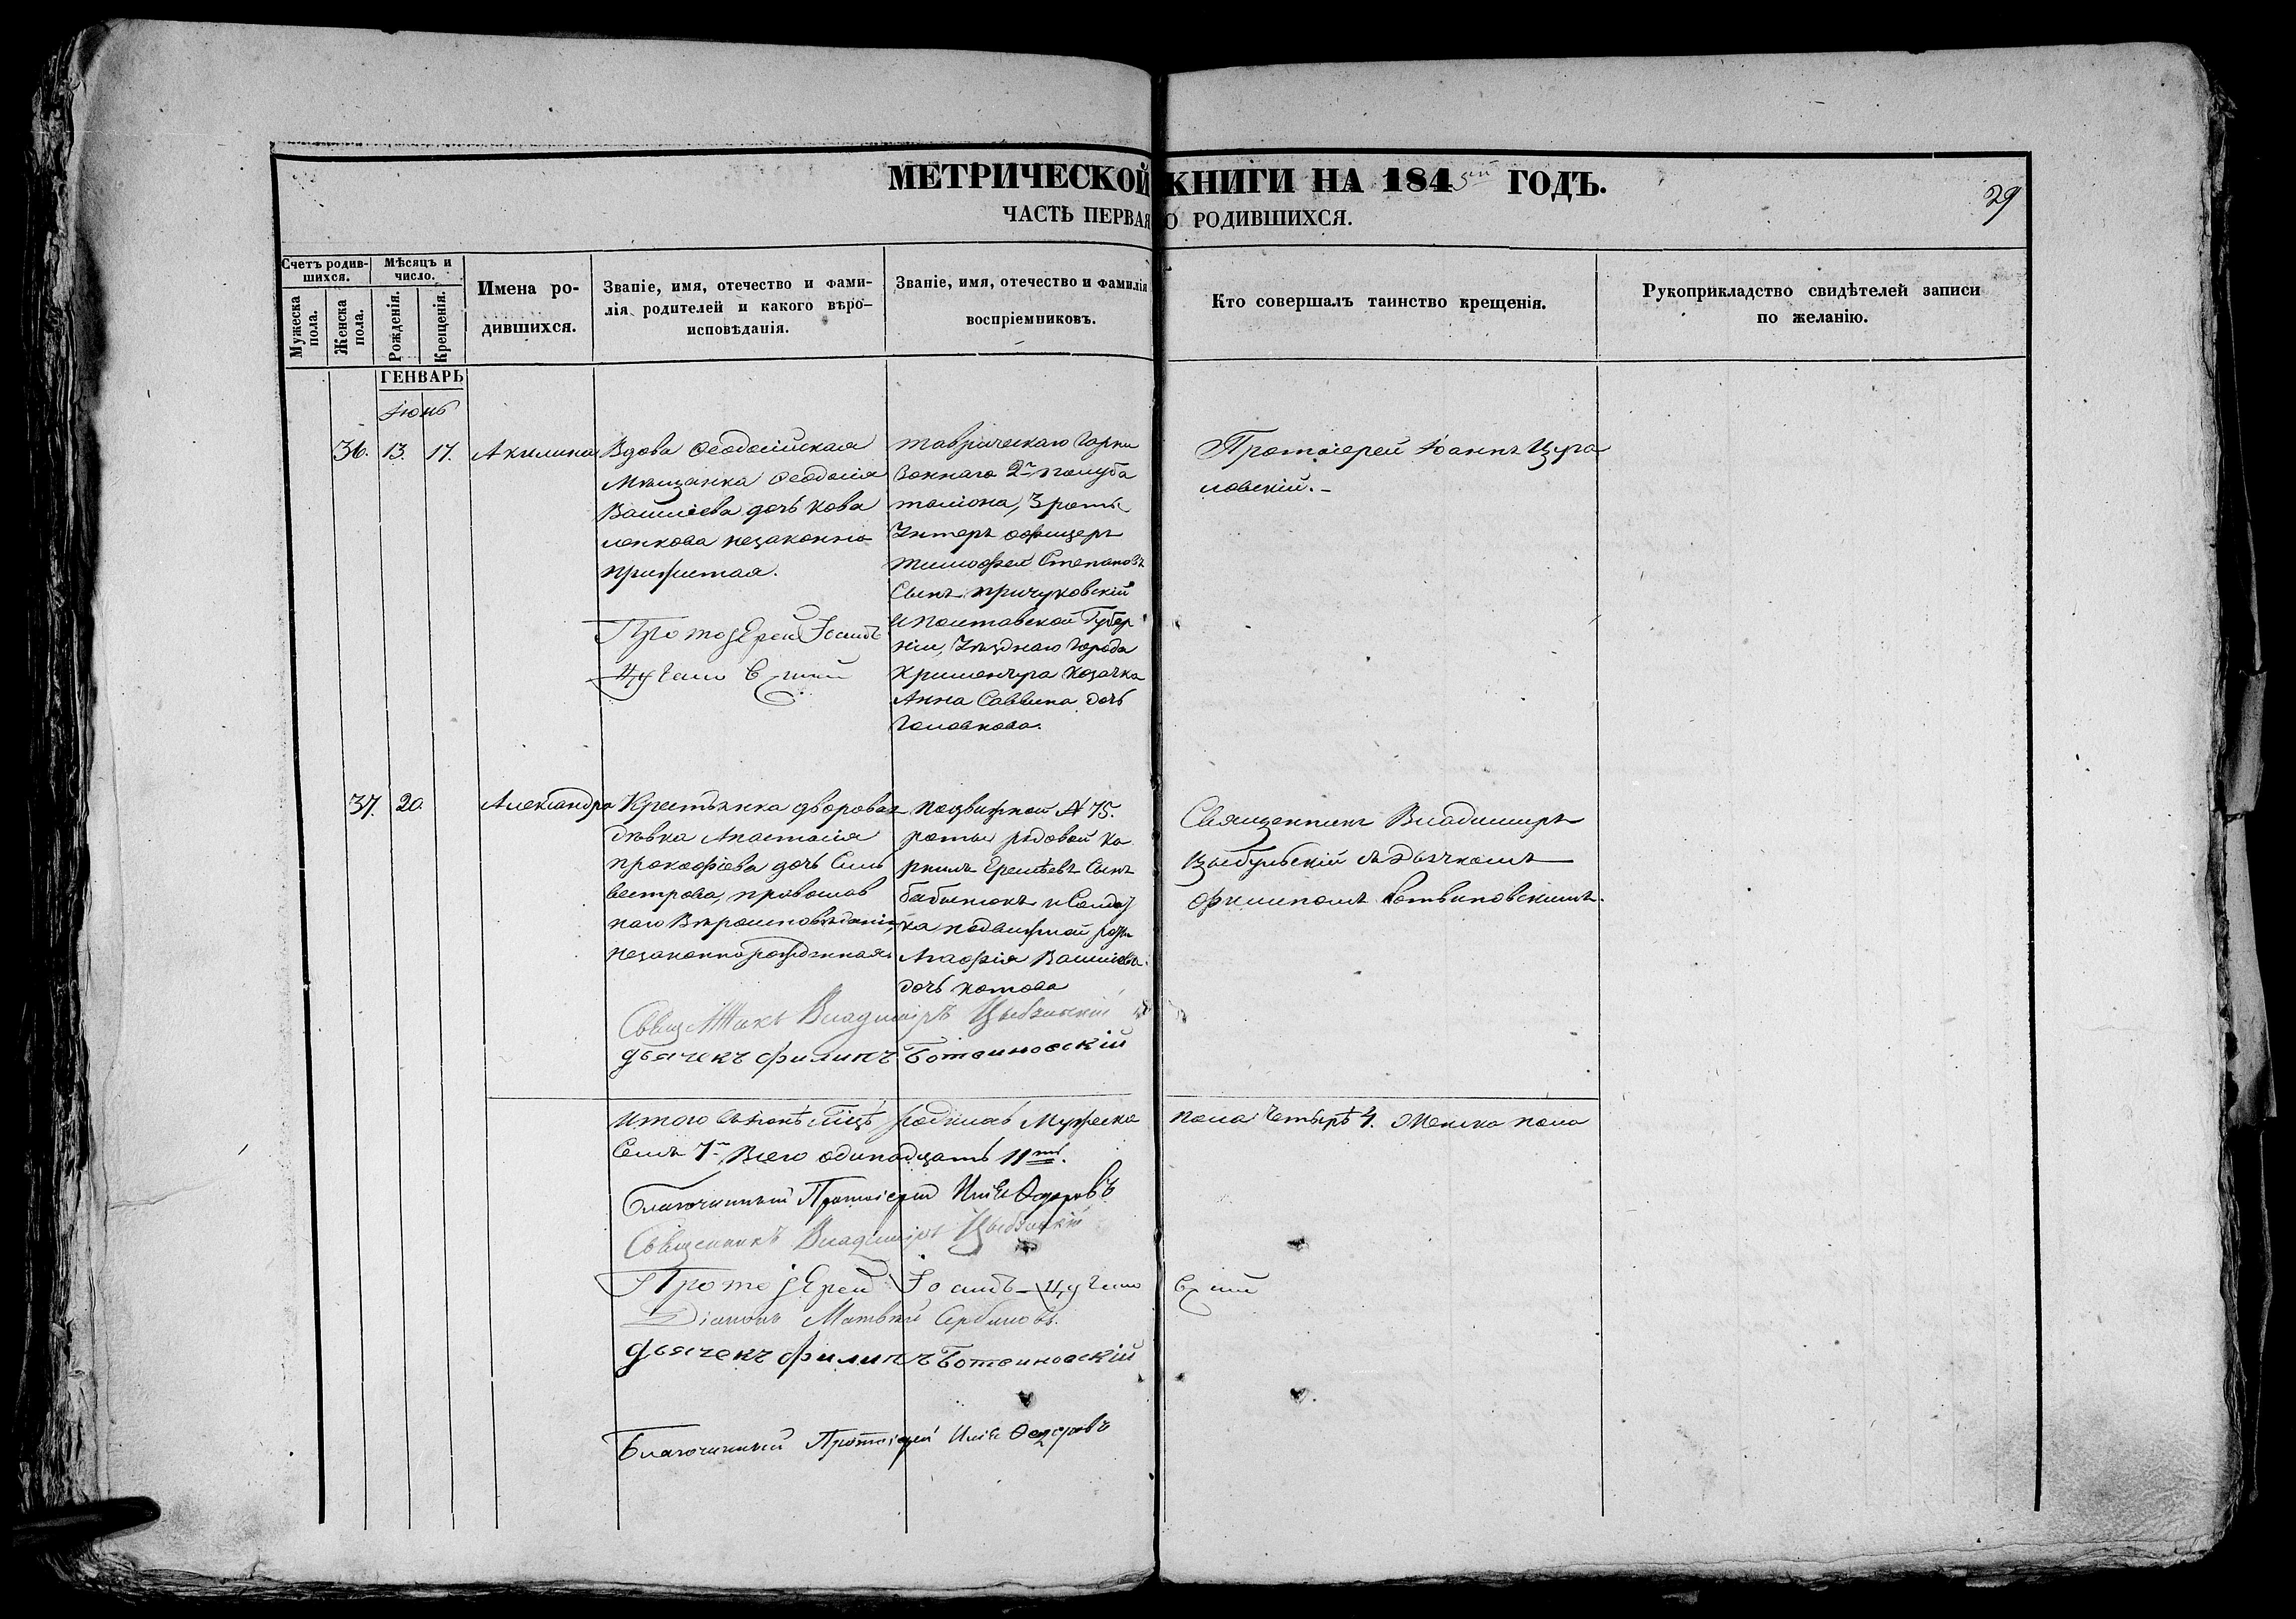 МЕТРИЧЕСКОЙ КНИГИ НА 1845й ГОДЪ.
29
ЧАСТЬ ПЕРВАЯ О РОДИВШИХСЯ.
Счетъ родившихся.
Мужеска пола.
Женска пола.
Мѣсяцъ и число.
Рожденія.
Крещенія.
Имена родившихся.
Званіе, имя, отечество и фами-
лія родителей и какого вѣро-
исповѣданія.
Званіе, имя, отечество и фамилія
воспріемниковъ.
Кто совершалъ таинство крещенія.
Рукоприкладство свидѣтелей записи
по желанію.
ГЕНВАРЬ
Іюнь
36. 13. 17. Акилина
Вдова Ѳеодосійская
Мѣщанка Ѳеодосія
Василіева дочь Кова
ленкова незаконно
прижитая.
ПротоіЕрей Іоаннъ
Таврическаго Гарни
зоннаго 2го полуба
таліона, 3 роты
Унтеръ офицеръ
Тимофей Степановъ
Сынъ Причуковскій
и Полтавской Губер
ніи, Уѣзднаго города
Крименчуга Козачка
Анна Саввина дочь
Головкова.
Протоіерей Іоаннъ
ловскій.
37. 20. Александра
Крестьянка дворовая
дѣвка Анастасія
Прокофіева дочь Силь
вестрова, православ
наго Вѣроисповѣданія,
незаконнорожденная
Подвижной № 75.
роты рядовой Ка
рнилъ Еремѣевъ Сынъ
Бабынюкъ и Солдат
ка подвижной роты
Агафія Василіева
дочь Котова
Священникъ Владимиръ
Цыбульскій съ Дьячкомъ
Филипомъ Ботвиновскимъ.
Священникъ Владиміръ Цыбульскій
дьячекъ Филипъ Ботвиновскій
Итого въ Іюнѣ мѣсяцѣ родилось Мужеска пола Четырѣ 4. Женска пола
Семь 7. Всего одинадцать 11ть.
Благочинный Протоіерей Илія Ѳедоровъ
Священникъ Владиміръ Цыбульскій
ПротоіЕрей Іоаннъ
Діаконъ Матвей Сербиновъ.
дьячекъ Филипъ Ботвиновскій
Благочинный Протоіерей Илія Ѳедоровъ